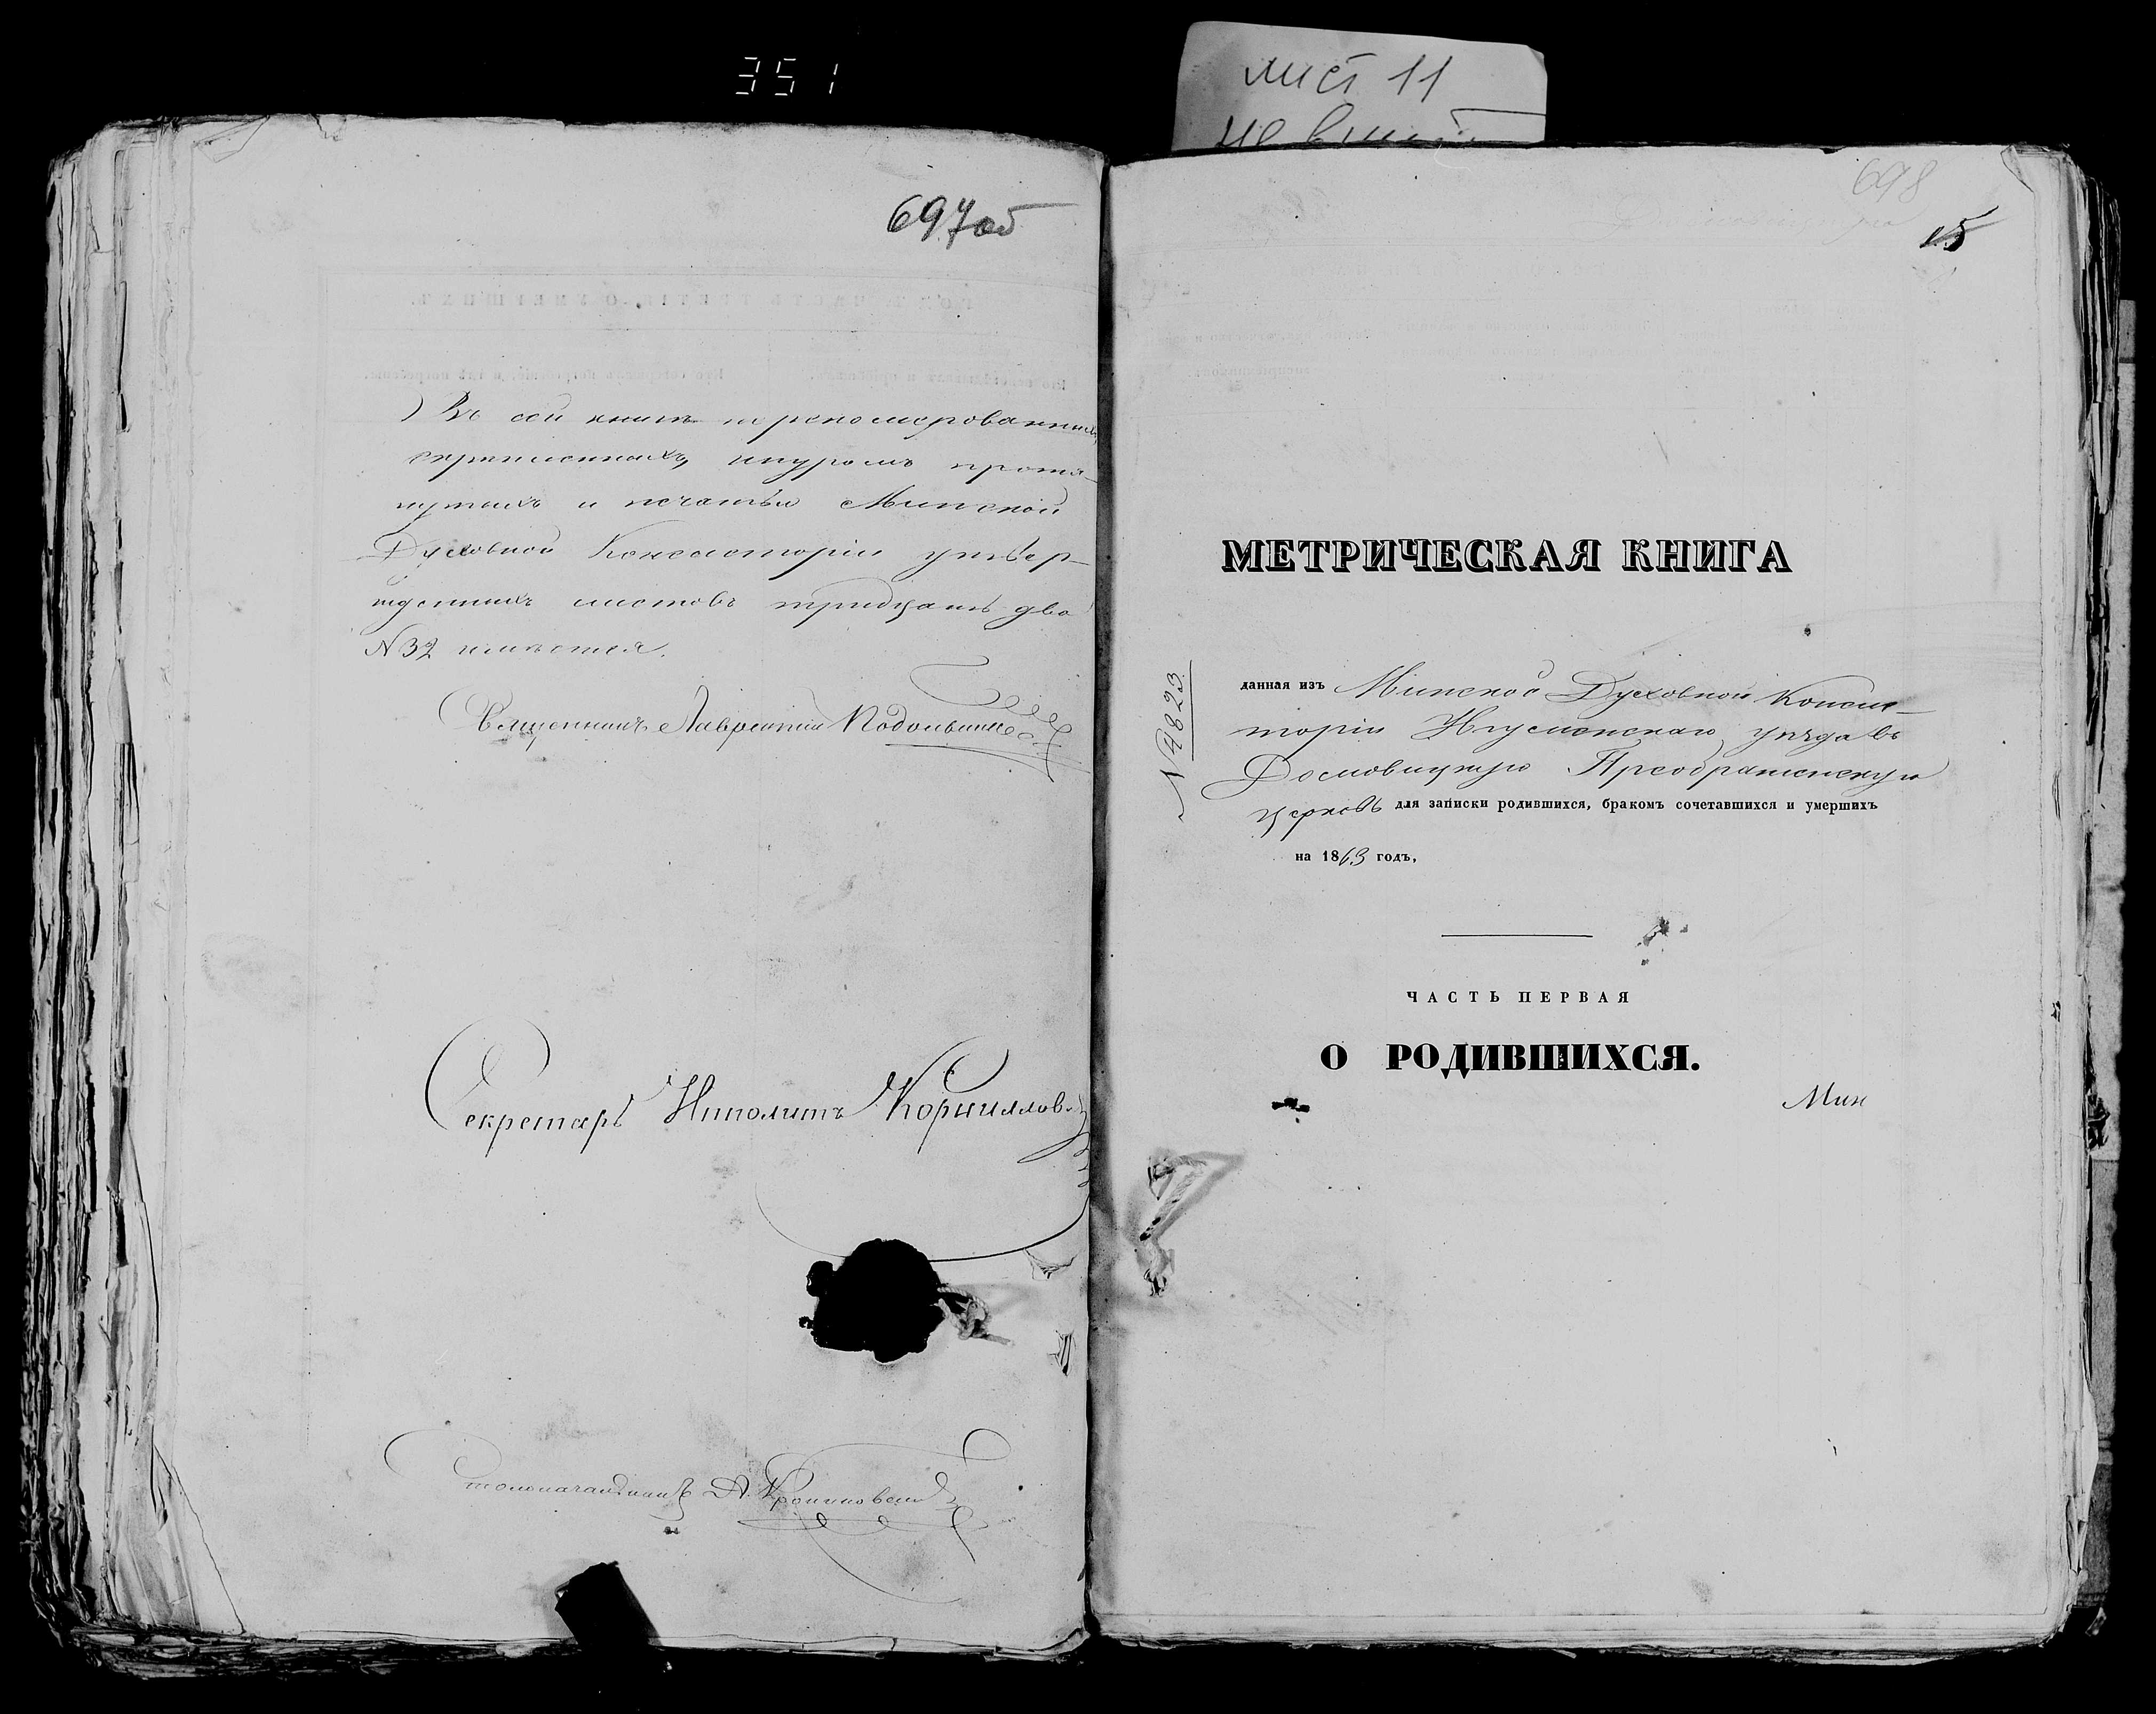 351
лист 11
697об
Въ сей книге перенумерованныхъ,
скрепленныхъ, шнуромъ протя-
нутыхъ и печатью Минской
Духовной Консисторіи утвер-
жденныхъ листовъ тридцать два
N 32 имѣется.
Священникъ Лаврентій
Секретарь Ипполитъ
Столоначальникъ А.
698
15
МЕТРИЧЕСКАЯ КНИГА
N 4823
данная изъ Минской Духовной Консис-
торіи Игуменскаго уѣзда въ
Дословицкую Преображенскую
церковь для записки родившихся, бракомъ сочетавшихся и умершихъ
на 1863 годъ,
ЧАСТЬ ПЕРВАЯ
О РОДИВШИХСЯ.
Мин